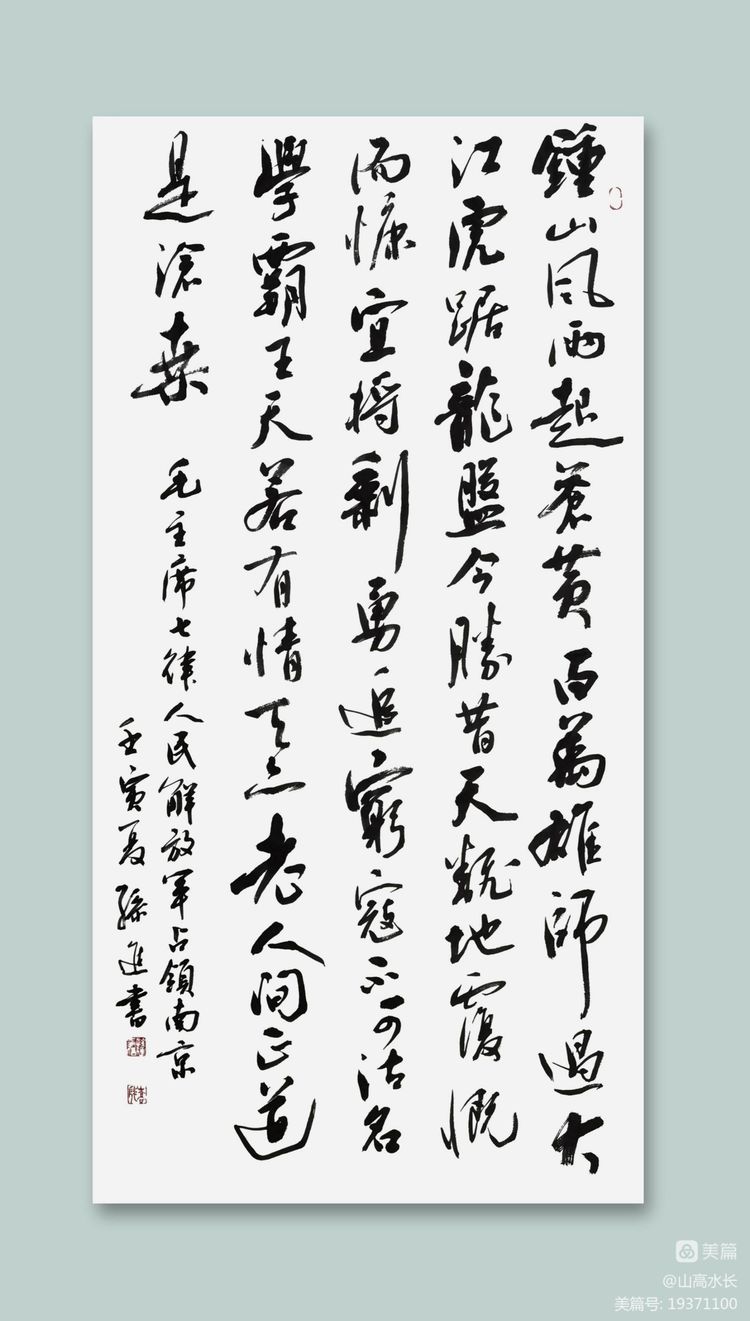 鍾山风雨起蒼黄百萬雄師過大
江虎踞龍盤今勝昔天翻地覆慨
而慷宜將剩勇追窮寇不可沽名
學霸王天若有情天亦老人间正道
是滄桑
毛主席七律人民解放军占領南京
壬寅夏孫進書
美篇
@山高水长
美篇号: 19371100